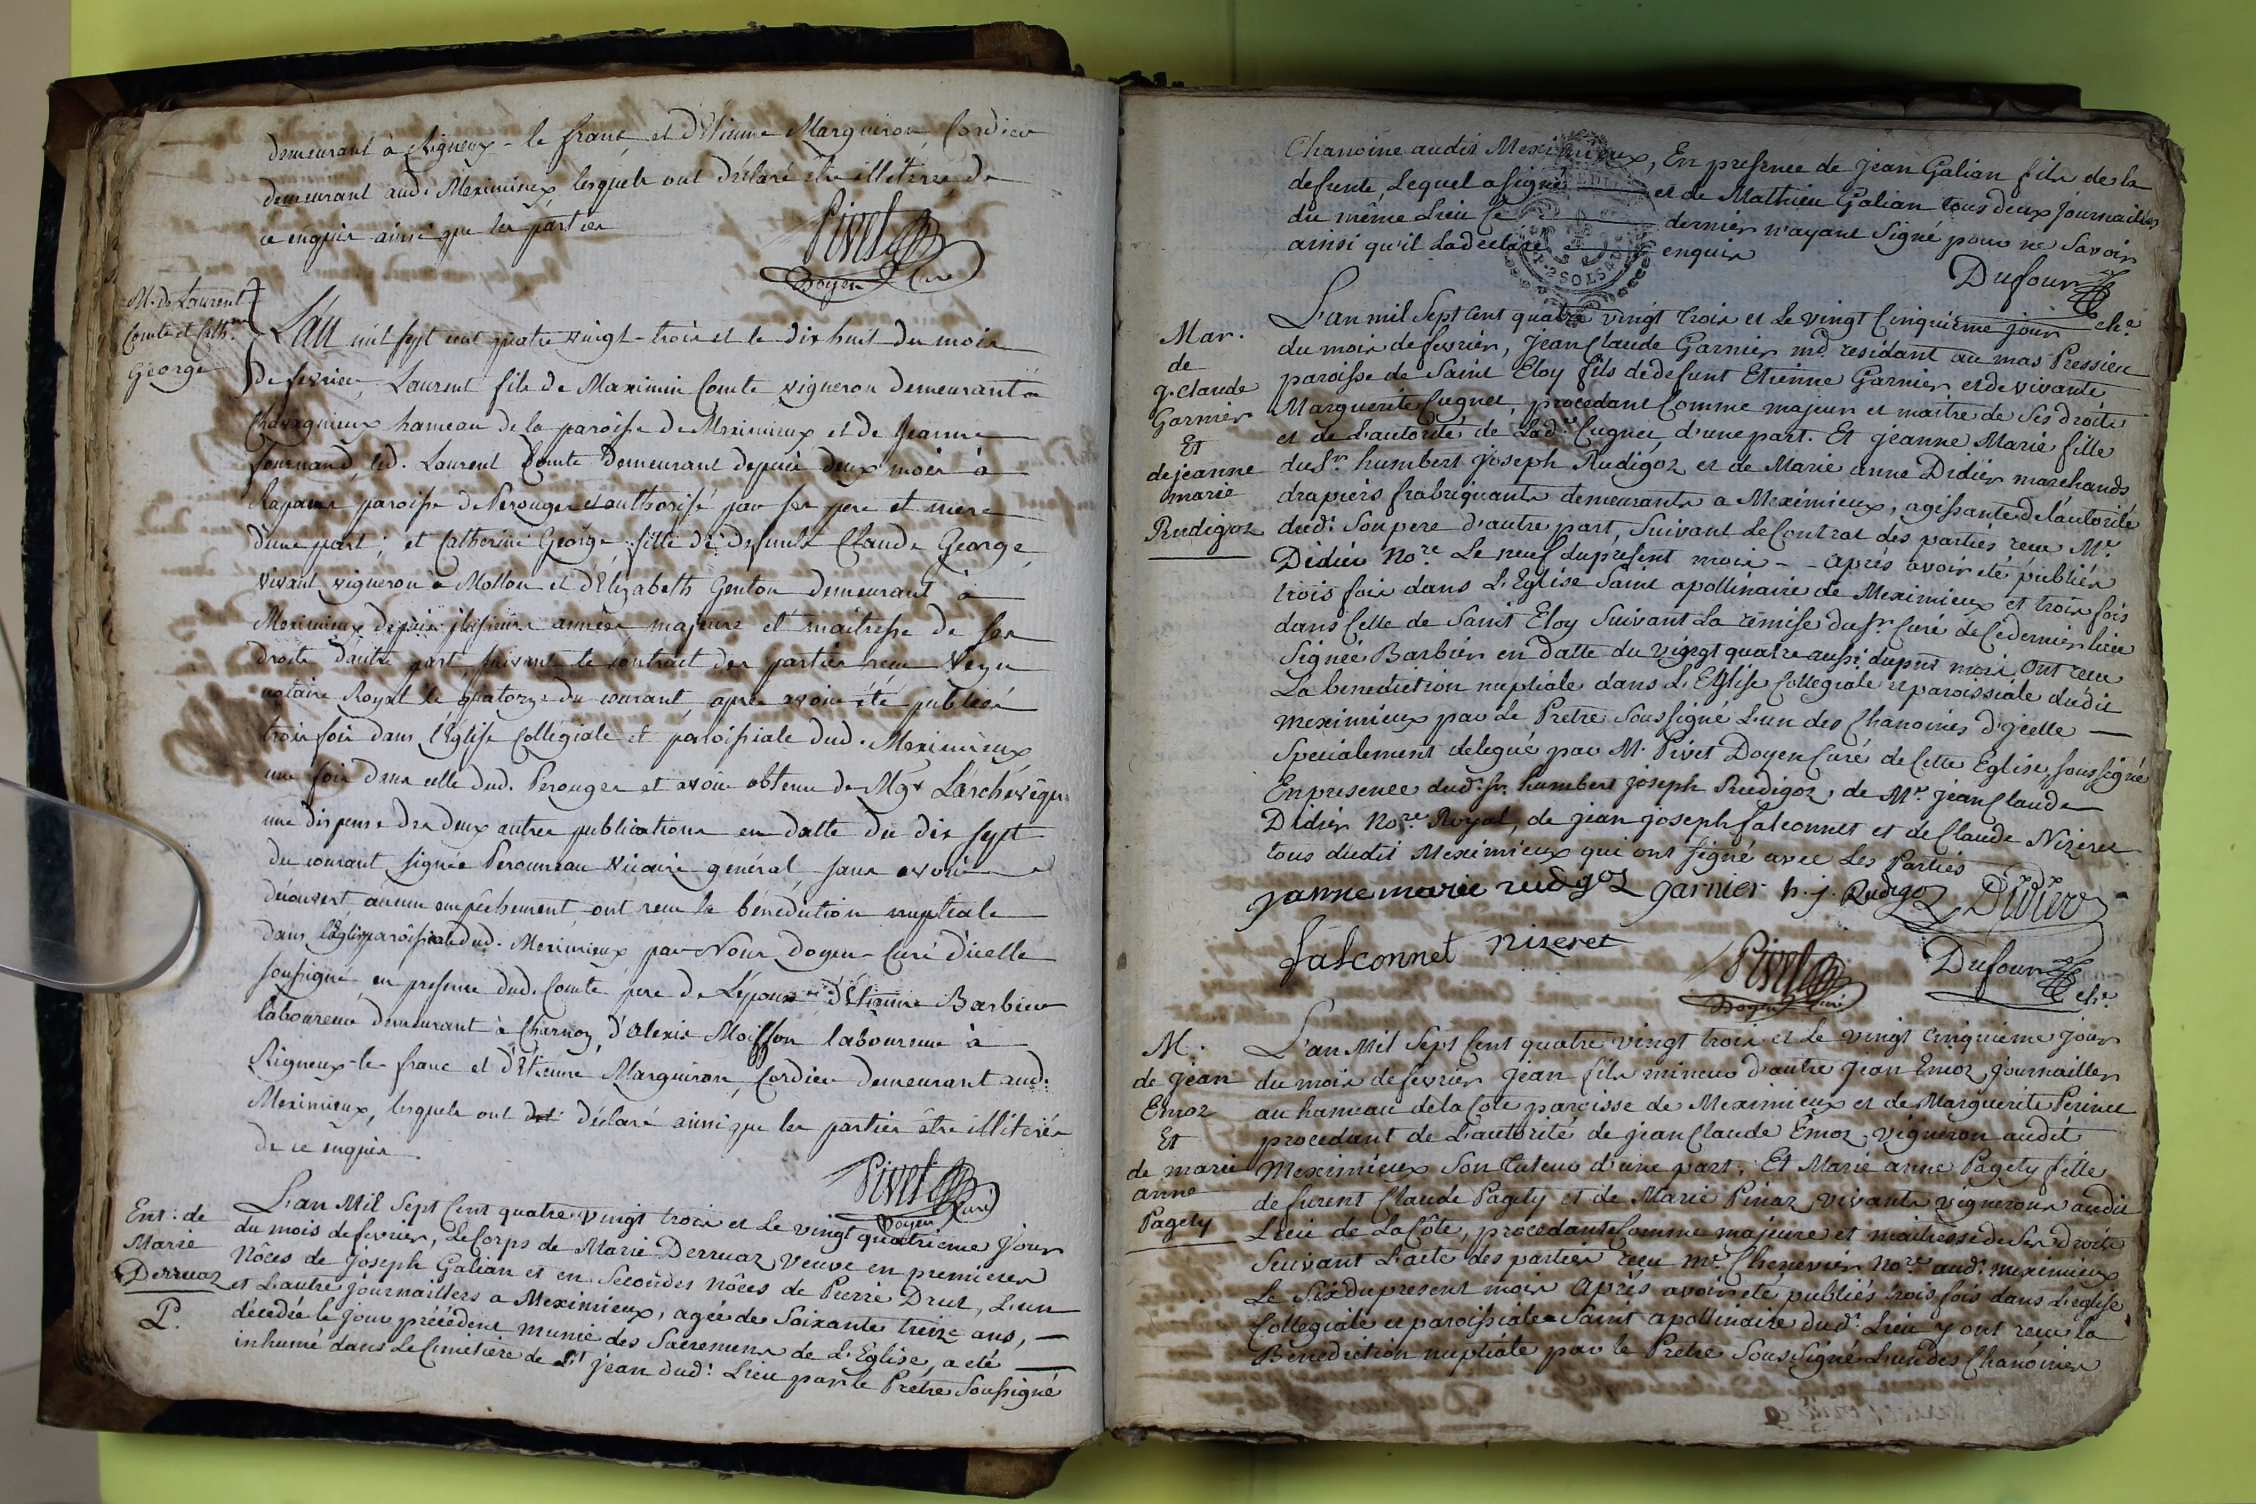 demeurant à Rigneux-le franc, et d'Etienne Marguiron Cordier
demeurant aud. Meximieux lesquels ont déclaré être illitérés de
ce enquis ainsi que les parties
Pivet
Doyen Curé
M. de Laurent
Comte et Cath.
George
L'an mil sept cent quatre vingt-trois et le dix huit du mois
de fevrier, Laurent fils de Maximin Comte vigneron demeurant à
Chavagnieux hameau de la paroisse de Meximieux et de Jeanne
led. Laurent Comte demeurant depuis deux mois à
paroisse de Perouges et authorisé par ses pere et mere
d'une part; et Catherine George fille de defunts Claude George
vivant vigneron à Mollon et d'Elizabeth Genton demeurant à
Meximieux depuis plusieurs années majeure et maitresse de ses
droits d'autre part, suivant le contract des parties reçu
notaire Royal le quatorze du courant, après avoir été publiés
trois fois dans l'Eglise Collégiale et paroissiale dud. Meximieux
une fois dans celle dud. Perouges et avoir obtenu de Mgr L'archevêque
une dispense des deux autres publications en datte du dix sept
du courant signée Vicaire général sans avoir
découvert aucun empêchement ont reçu la bénédiction nuptiale
dans l'Eglise paroissiale dud. Meximieux par Nous Doyen-Curé d'icelle
soussigné en presence dud. Comte pere de L'epoux d'Etienne Barbier
laboureur demeurant à Charnoz, d'alexis Moisson laboureur à
Rigneux-le-franc et d'Etienne Marguiron, Cordier demeurant aud.
Meximieux, lesquels ont déclaré ainsi que les parties être illitérés
de ce enquis
Pivet
Doyen Curé
Ent: de
Marie
Derruaz
P.
L'an Mil Sept Cent quatre vingt trois et Le vingt quatrieme Jour
du mois de fevrier, Le Corps de Marie Derruaz veuve en premieres
Nôces de Joseph Galian et en Secondes nôces de Pierre Drut, L'un
et L'autre journailiers a Meximieux, agée de Soixante treize ans,
décédée le jour précédent munie des Sacremens de L'Eglise, a eté
inhumé dans Le Cimetiere de St jean dud: Lieu par le Prêtre Soussigné
Chanoine audit Meximieux, En presence de Jean Galian fils de la
defunte, Lequel a signé et de Mathieu Galian tous deux Journailiers
du même Lieu Ce dernier n'ayant Signé pour ne Savoir
ainsi qu'il La declaré enquis
Dufour
che
Mar.
de
J. Claude
Garnier
Et
de jeanne
marie
Rudigoz
L'an mil Sept Cent quatre vingt trois et Le vingt Cinquième jour
du mois de fevrier, Jean Claude Garnier md. residant au mas Pressieu
paroisse de Saint Eloy fils de defunt Etienne Garnier et de vivante
Marguerite Cugnet, procedant Comme majeur et maitre de Ses droits
et de L'autorité de Lad. Cugnet, d'une part. Et jeanne Marie fille
du Sr. humbert joseph Rudigoz et de Marie anne Didier marchands
drapiers frabriquants demeurants a Meximieux, agissante de l'autorité
dud: Son pere d'autre part, Suivant le Contrat des parties reçu Me.
Didier No.re Le neuf du present mois - - après avoir été publiés
trois fois dans L'Eglise Saint apollinaire de Meximieux et trois fois
dans Celle de Saint Eloy Suivant La remise du Sr. Curé de Ce dernier lieu
Signée Barbier en datte du vingt quatre aussi du pnt mois, Ont reçu
La benediction nuptiale dans L'Eglise Collegiale et paroissiale dudit
meximieux par Le Pretre Soussigné L'un des Chanoines d'icelle
Specialement delegué par M. Pivet Doyen Curé de Cette Eglise soussigné
En presence dud. Sr. humbert joseph Rudigoz, de Me. jean Claude
Didier No.re Royal, de jean joseph falconnet et de Claude Nizeret
tous dudit Meximieux qui ont signé avec Les Parties
janne marie rudigoz garnier h. j. Rudigoz Didier
falconnet nizeret
Pivet
Doyen Curé
Dufour
che.
M.
de jean
Emoz
Et
de marie
anne
Pagety
L'an Mil Sept Cent quatre vingt trois et Le vingt cinquieme jour
du mois de fevrier Jean fils mineur d'autre Jean Emoz, journailier
au hameau de la Cote paroisse de Meximieux et de Marguerite Perinet
procedant de L'autorité de jean Claude Emoz, vigneron audit
Meximieux Son tuteur d'une part; Et Marie anne Pagety fille
de furent Claude Pagety et de Marie Pinaz, vivants vignerons audit
Lieu de La Côte, procedante Comme majeure et maitresse de Ses droits
Suivant L'acte des parties reçu me. Chenevier No.re aud: meximieux
Le Six du present mois Après avoir été publiés trois fois dans L'eglise
Collegiale et paroissiale Saint apollinaire dud: Lieu y ont reçu la
Benediction nuptiale par le Prêtre Soussigné L'un des Chanoines